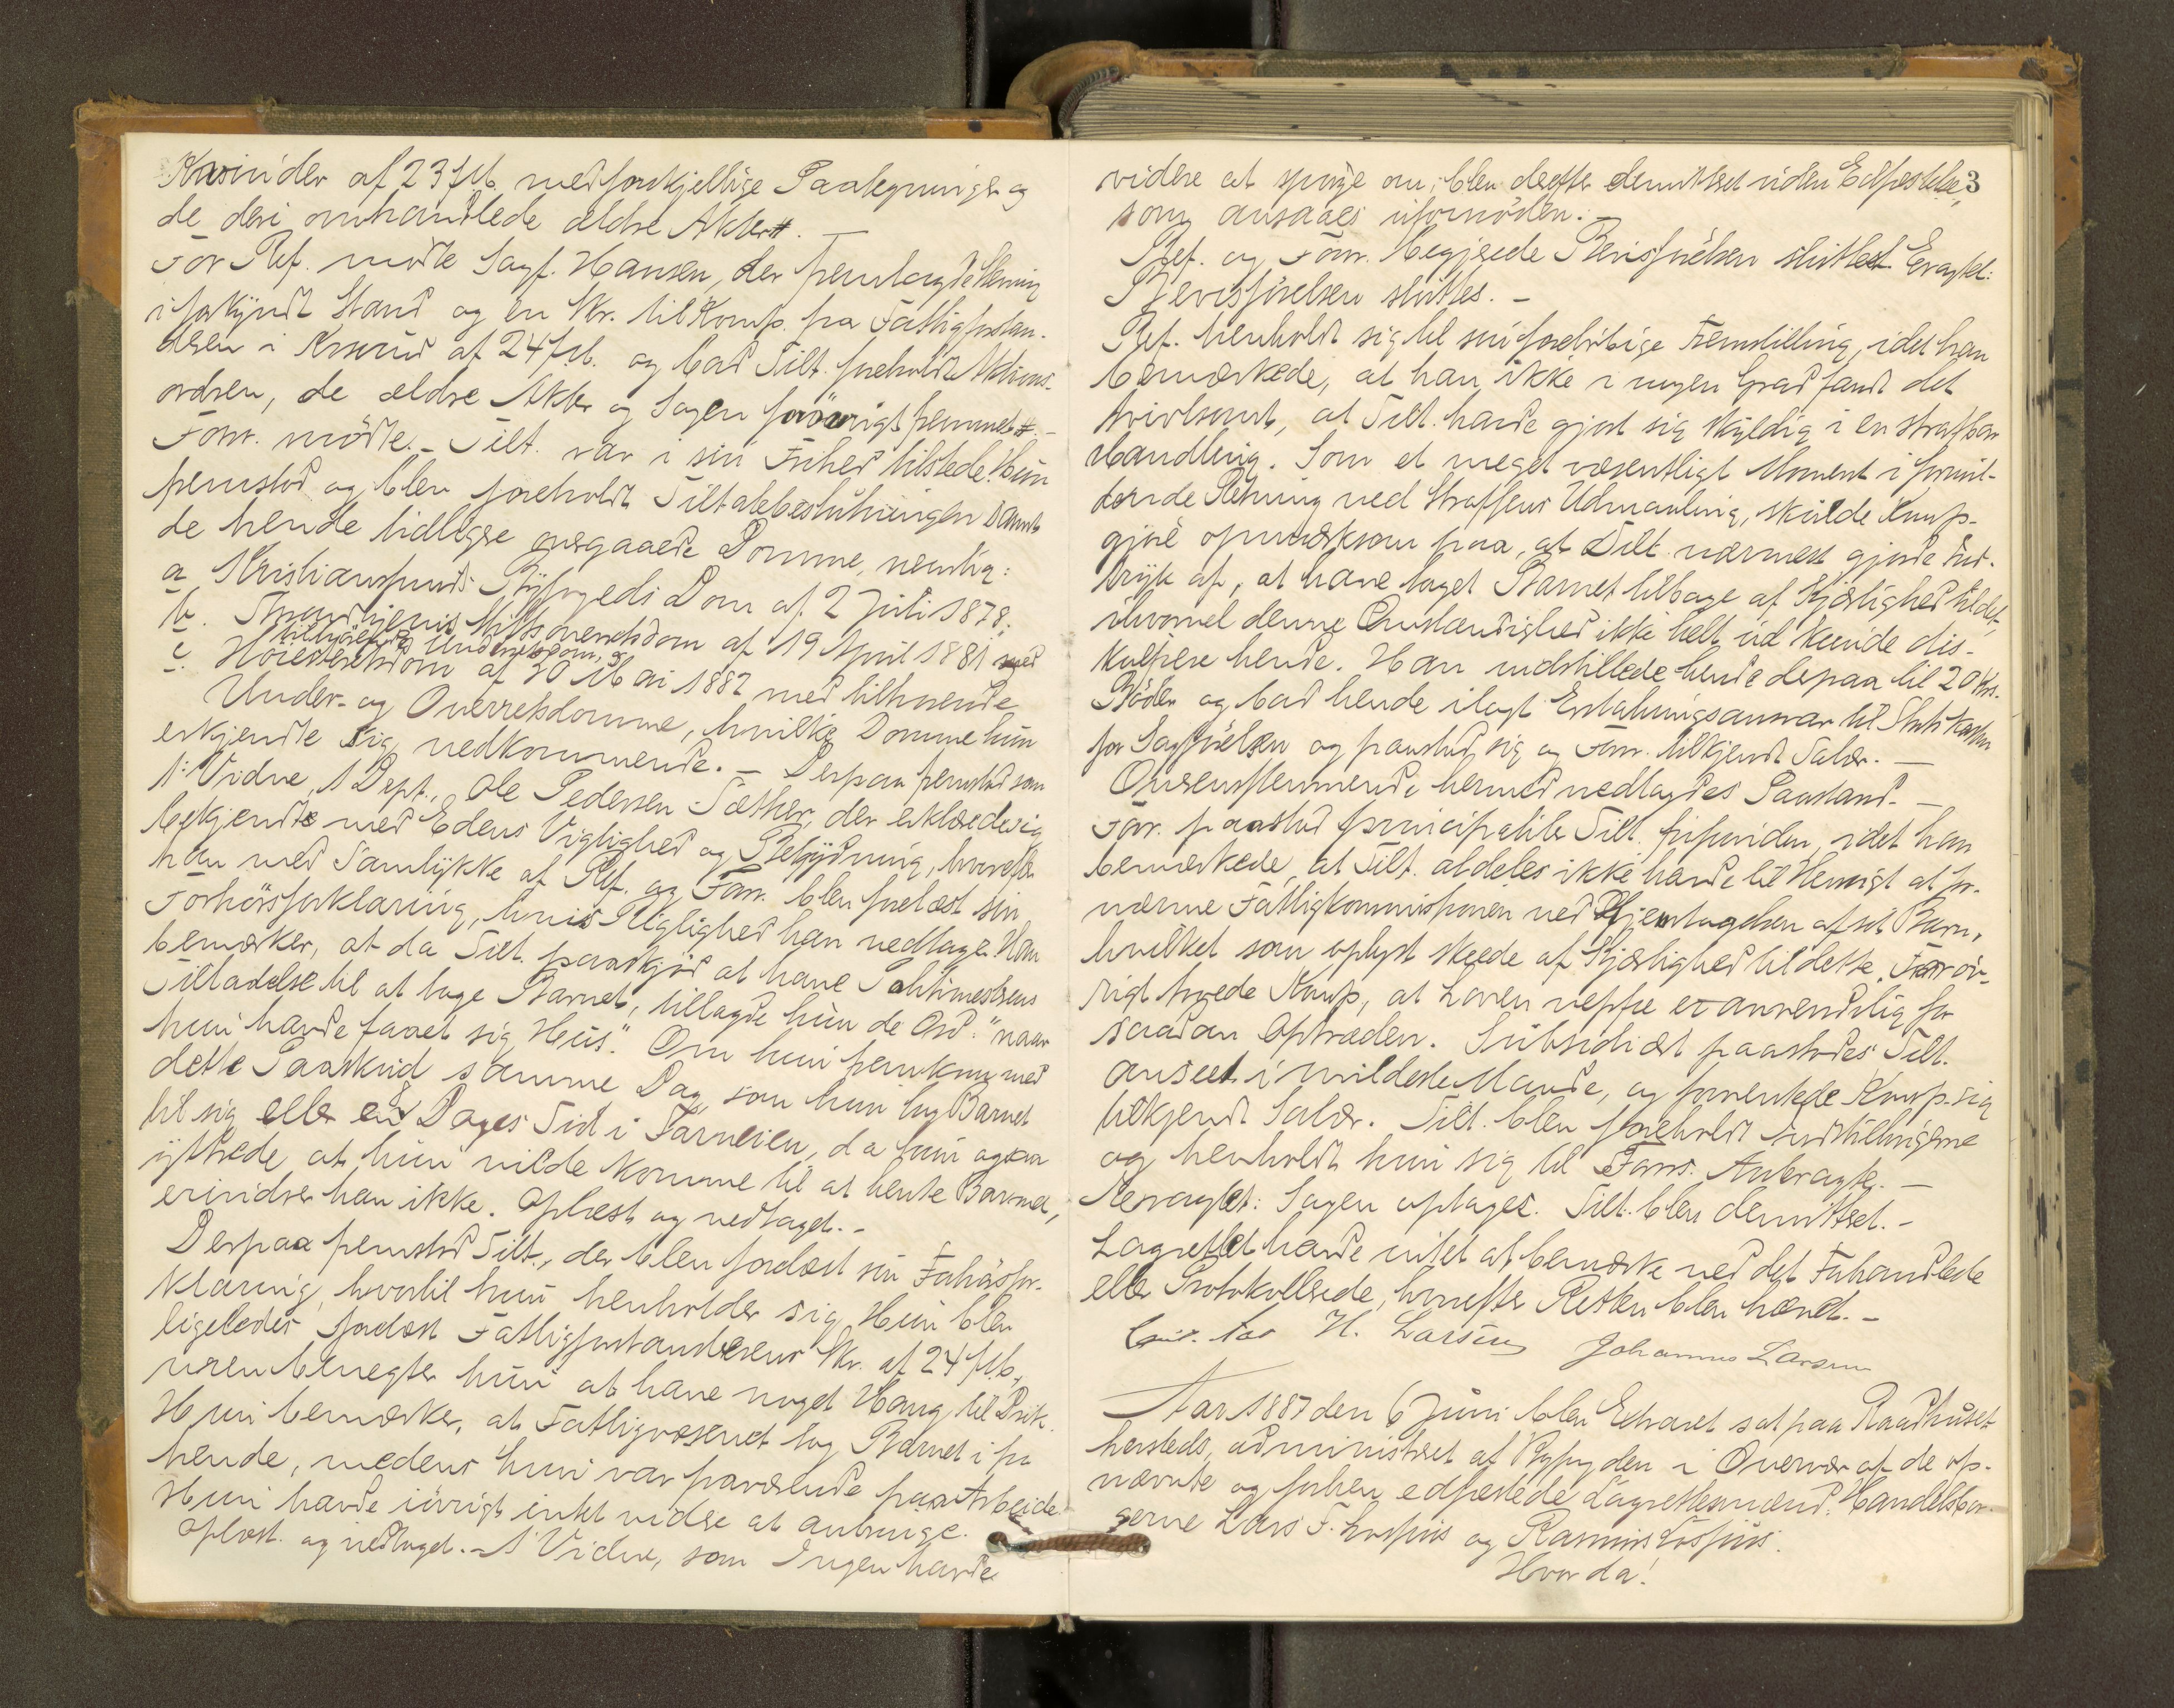 Krsunder af 23 feb. med forskjellige Paategninger og
de deri omhandlede ældre Akter.
For Ref. mødte Sagf. Hansen, der fremlagde Stevning
i forkyndt Stand og en Skr. til Komp. fra Fattigforstan-
deren i Krsund af 24 feb. og bad Tilt. foreholdt Aktions-
ordren, de ældre Akter og Sagen forøvrigt fremmet. -
Forsv. mødte. - Tilt. var i sin Frihed tilstede. Hun
fremstod og blev foreholdt Tiltalebeslutningen samt
de hende tidligere overgaaede Domme, nemlig:
a Kristianssunds Byfogeds Dom af 2 Juli 1878.
b. Throndhjems Stiftsoverretsdom af 19 April 1881 med
tilhørende Underretsdom, og
c. Høiesteretsdom af 30 Mai 1882 med tilhørende
Under- og Overretsdomme, hvilke Domme hun
erkjendte sig vedkommende. - Derpaa fremstod som
1. Vidne, 1 Dept., Ole Pedersen Sæther, der erklærede sig
bekjendt med Edens Vigtighed og Betydning, hvorefter
han med Samtykke af Ref. og Forsv. blev forelæst sin
Forhørsforklaring, hvis Rigtighed han vedtager. Han
bemærker, at da Tilt. paaskjød at have Politimesterens
Tilladelse til at tage Barnet, tillagde hun de Ord: "naar
hun havde faaet sig Hus". Om hun fremkom med
dette Paaskud samme Dag, som hun tog Barnet
til sig eller en Dages Tid i Forveien, da hun ogsaa
yttrede at hun vilde komme til at hente Barnet,
erindrer han ikke. Oplæst og vedtaget. -
Derpaa fremstod Tilt., der blev forelæst sin Forhørsfor-
klaring, hvortil hun henholder sig. Hun blev
ligeledes forelæst Fattigforstanderens Skr. af 24 feb.,
men benegter hun at have noget Hang til Drik.
Hun bemærker, at Fattigvæsenet tog Barnet ifra
hende, medens hun var fraværende paa Arbeide.
Hun havde iøvrigt intet videre at anbringe.
Oplæst og vedtaget. - 1 Vidne, som Ingen havde
3
videre at spørge om, blev derefter demitteret uden Edfæstelse,
som ansaaes ufornøden. -
Ref. og Forsv. begjerede Bevisførelsen sluttet. Eragtet:
Bevisførelsen sluttes. -
Ref. henholdt sig til sin foreløbige Fremstilling, idet han
bemærkede, at han ikke i nogen Grad fandt det
tvivlsomt, at Tilt. havde gjort sig skyldig i en strafbar
Handling. Som et meget væsentligt Moment i formil-
dende Retning ved Straffens Udmaaling, skulde Komp.
gjøre opmærksom paa, at Tilt. nærmest gjorde Ind-
tryk af, at have taget Barnet tilbage af Kjærlighed til det,
ihvorvel denne Omstændighed ikke helt ud kunde dis-
kulpere hende. Han indstillede hende derpaa til 20 Krs.
Bøder og bad hende ilagt Erstatningsansvar til Statskassen
for Sagførelsen og paastod sig og Forsv. tilkjendt Salær. -
Overensstemmende hermed nedlagdes Paastand. -
Forsv. paastod principaliter Tilt. frifunden, idet han
bemærkede, at Tilt. aldeles ikke havde til Hensigt at for-
nærme Fattigkommissionen ved Gjentagelsen af sit Barn,
hvilket som oplyst skeede af Kjærlighed til dette. Forøv-
rigt troede Komp., at Loven neppe er anvendelig for
saadan Optræden. Subsidiært paastodes Tilt.
anseet i mildeste Maade, og forventede Komp. sig
tilkjendt Salær. Tilt. blev foreholdt Indstillingerne
og henholdt hun sig til Forsvs. Anbragte. -
Eragtet: Sagen optages. Tilt. blev demitteret. -
Lagrettet havde intet at bemærke ved det Forhandlede
eller Protokollerede, hvorefter Retten blev hævet. -
H. Larsen Johannes Larsen
Aar 1887 den 6 Juni blev Extraret sat paa Raadhuset
hersteds, administreret af Byfogden i Overvær af de op-
nævnte og forhen edfæstede Lagrettesmænd: Handelsbor-
gerne Lars F. Lossius og Rasmus Lossius.
Hvor da!